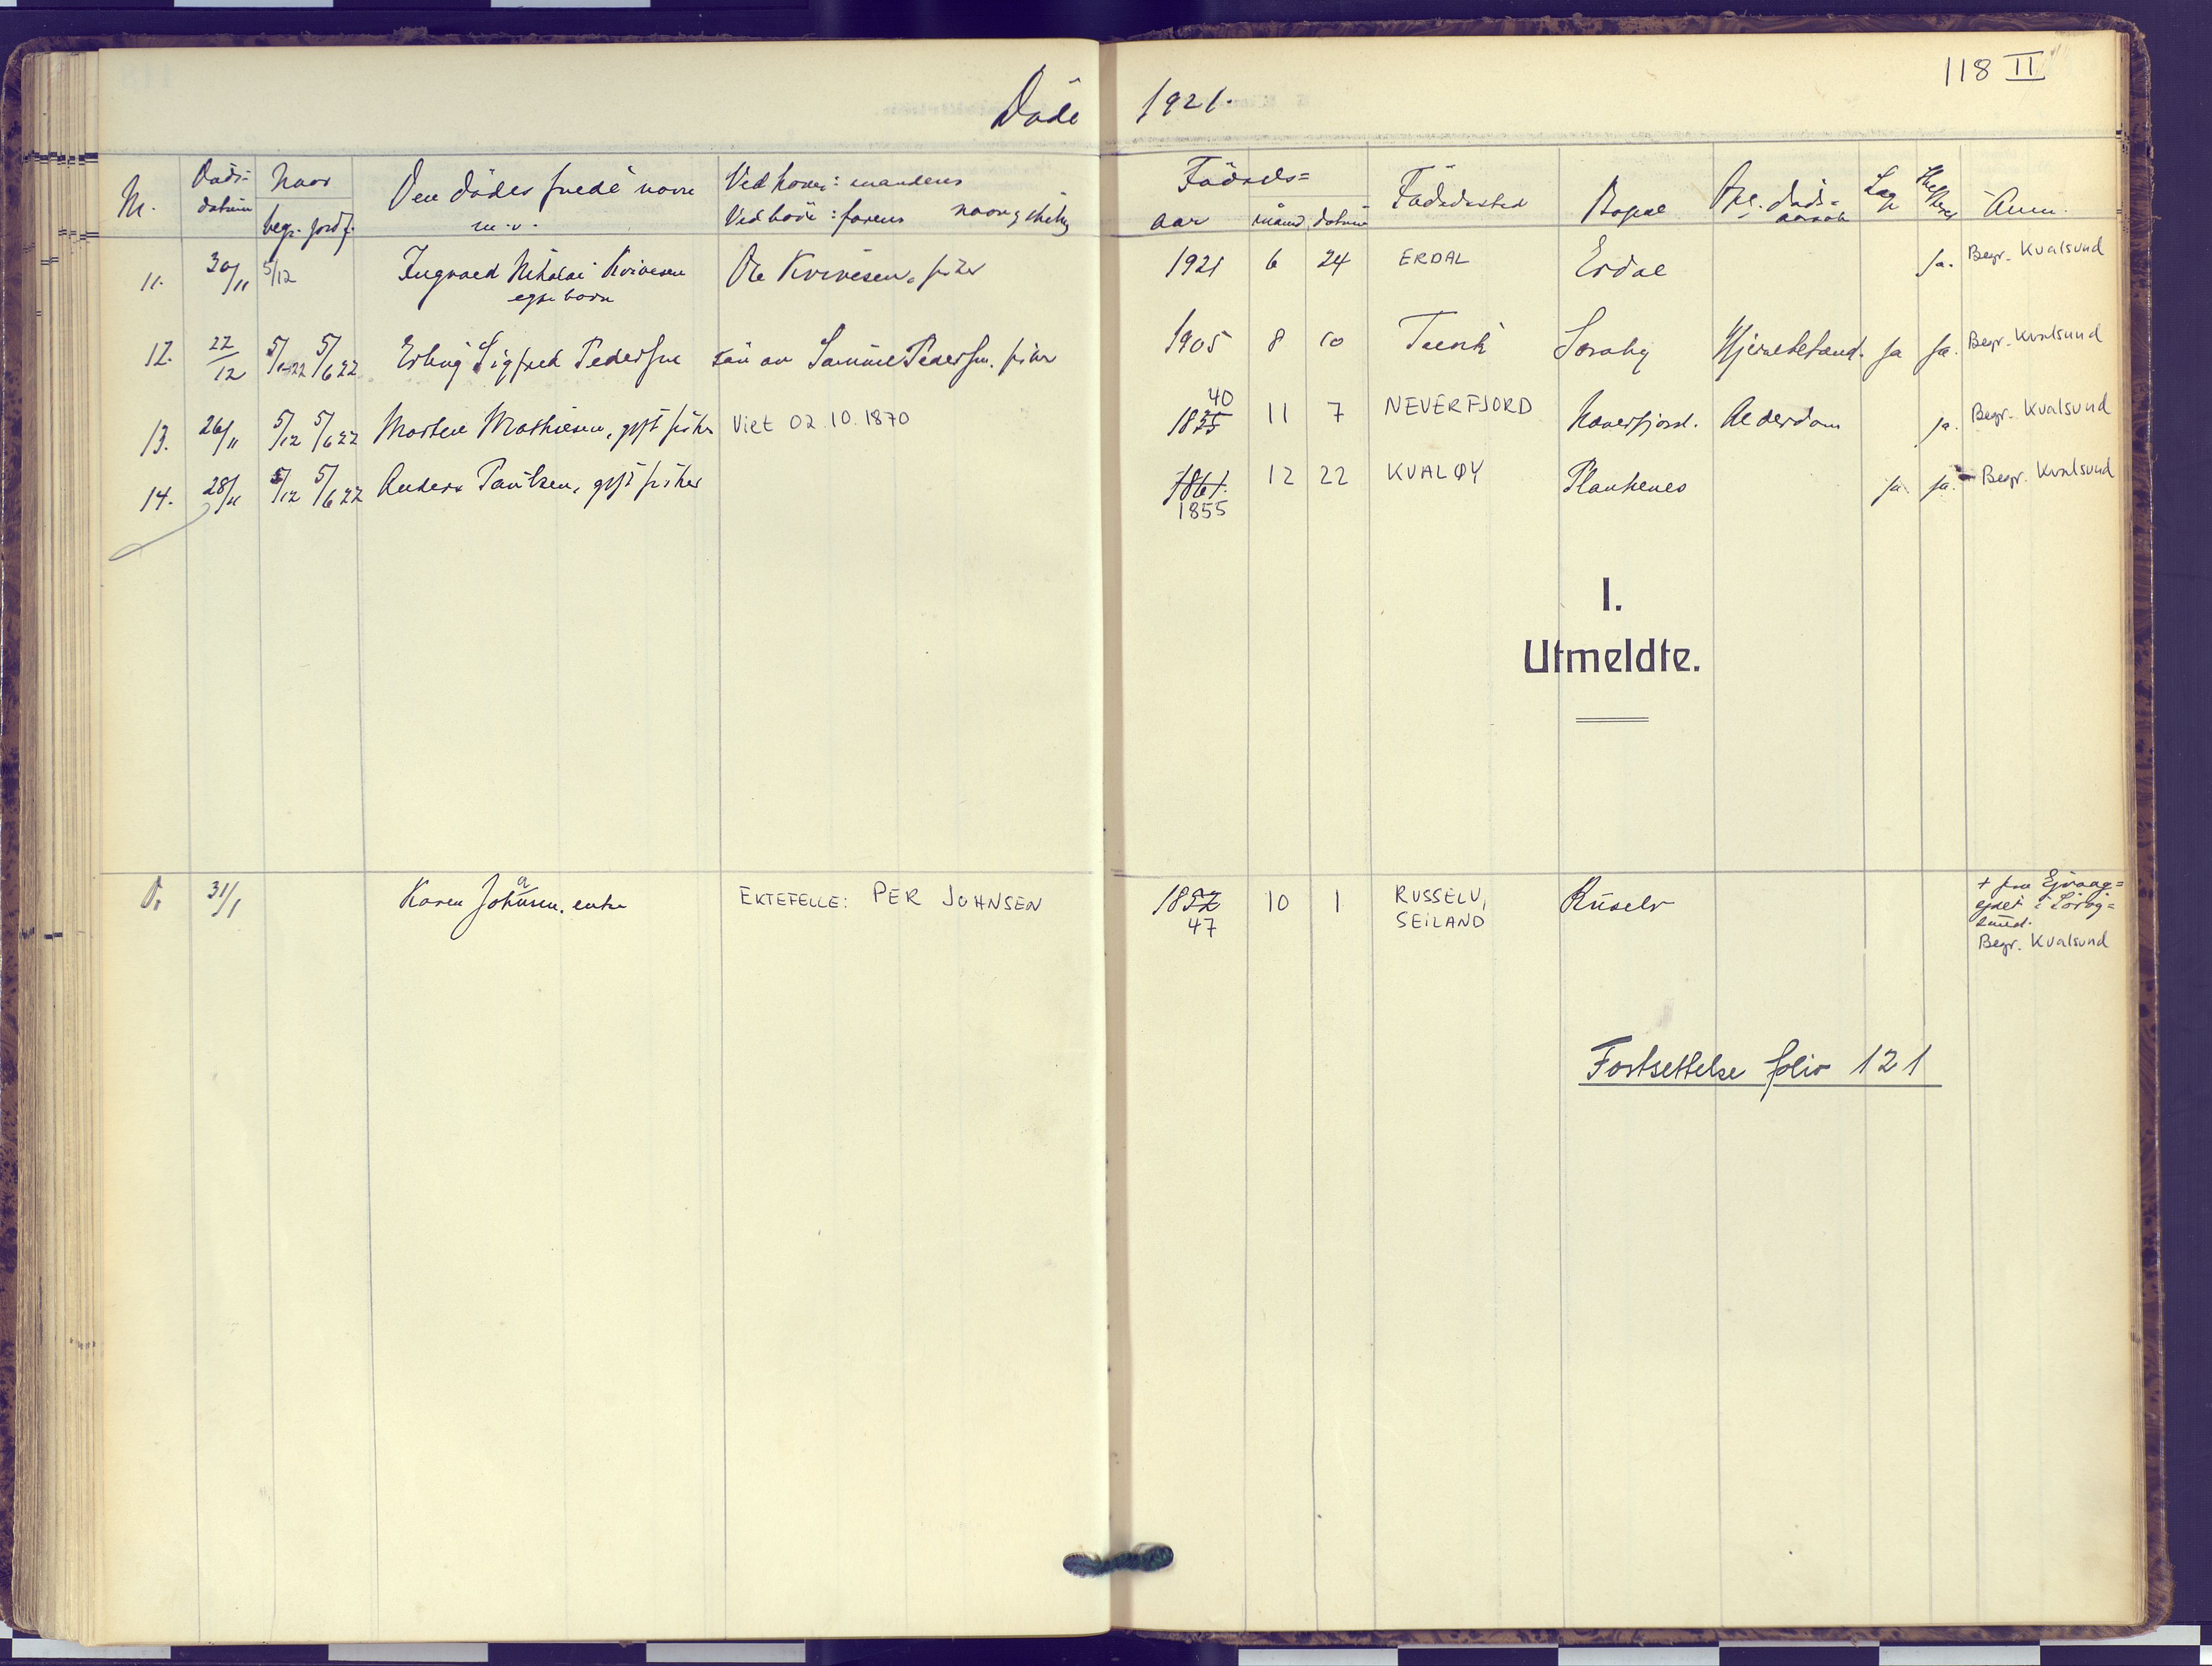 118 II
Döde 1921.
Nr. Döds- datum Naar begr. jordf. Den dödes fulde navn m.v. Ved koner: mandens Ved börn: farens navn og stilling Födsels= aar maaned datum Födested Bopæl Opg. döds= aarsak Anm.
11. 30/11 5/12 Ingvald Nikolai Kvivesen Ole Kvivesen, fisker 1921 6 24 ERDAL Erdal ja. Begr. Kvalsund
egte barn
12. 22/12 5/1-22 5/6 22 Erling Sigfred Pedersen sön av Samuel Pedersen, fisker 1905 8 10 Hjernebetænd. ja ja. Begr. Kvalsund
40
13. 26/11 5/12 5/6 22 Morten Mathisen, gift fisker Viet 02.10.1870 1835 11 7 NEVERFJORD Naverfjord. Alderdom ja. Begr. Kvalsund
14. 28/11 5/12 5/6 22 Anders Paulsen, gift fisker 1861. 12 22 KVALØY ja. ja. Begr. Kvalsund
1855
I.
Utmeldte.
D. 31/1 Karen Johnsen, enke EKTEFELLE: PER JOHNSEN 1852 10 1 RUSSELV, Ruselv
47 SEILAND
Begr. Kvalsund
Fortsettelse folio 121